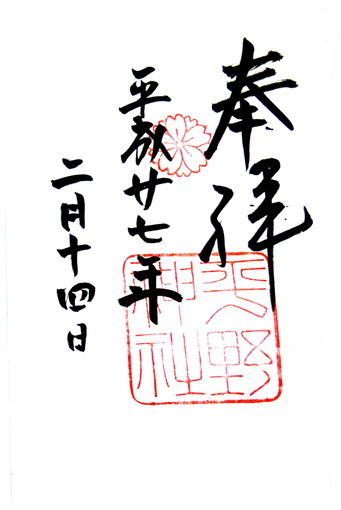 奉拝
平成廿七年
二月十四日
平野
神社